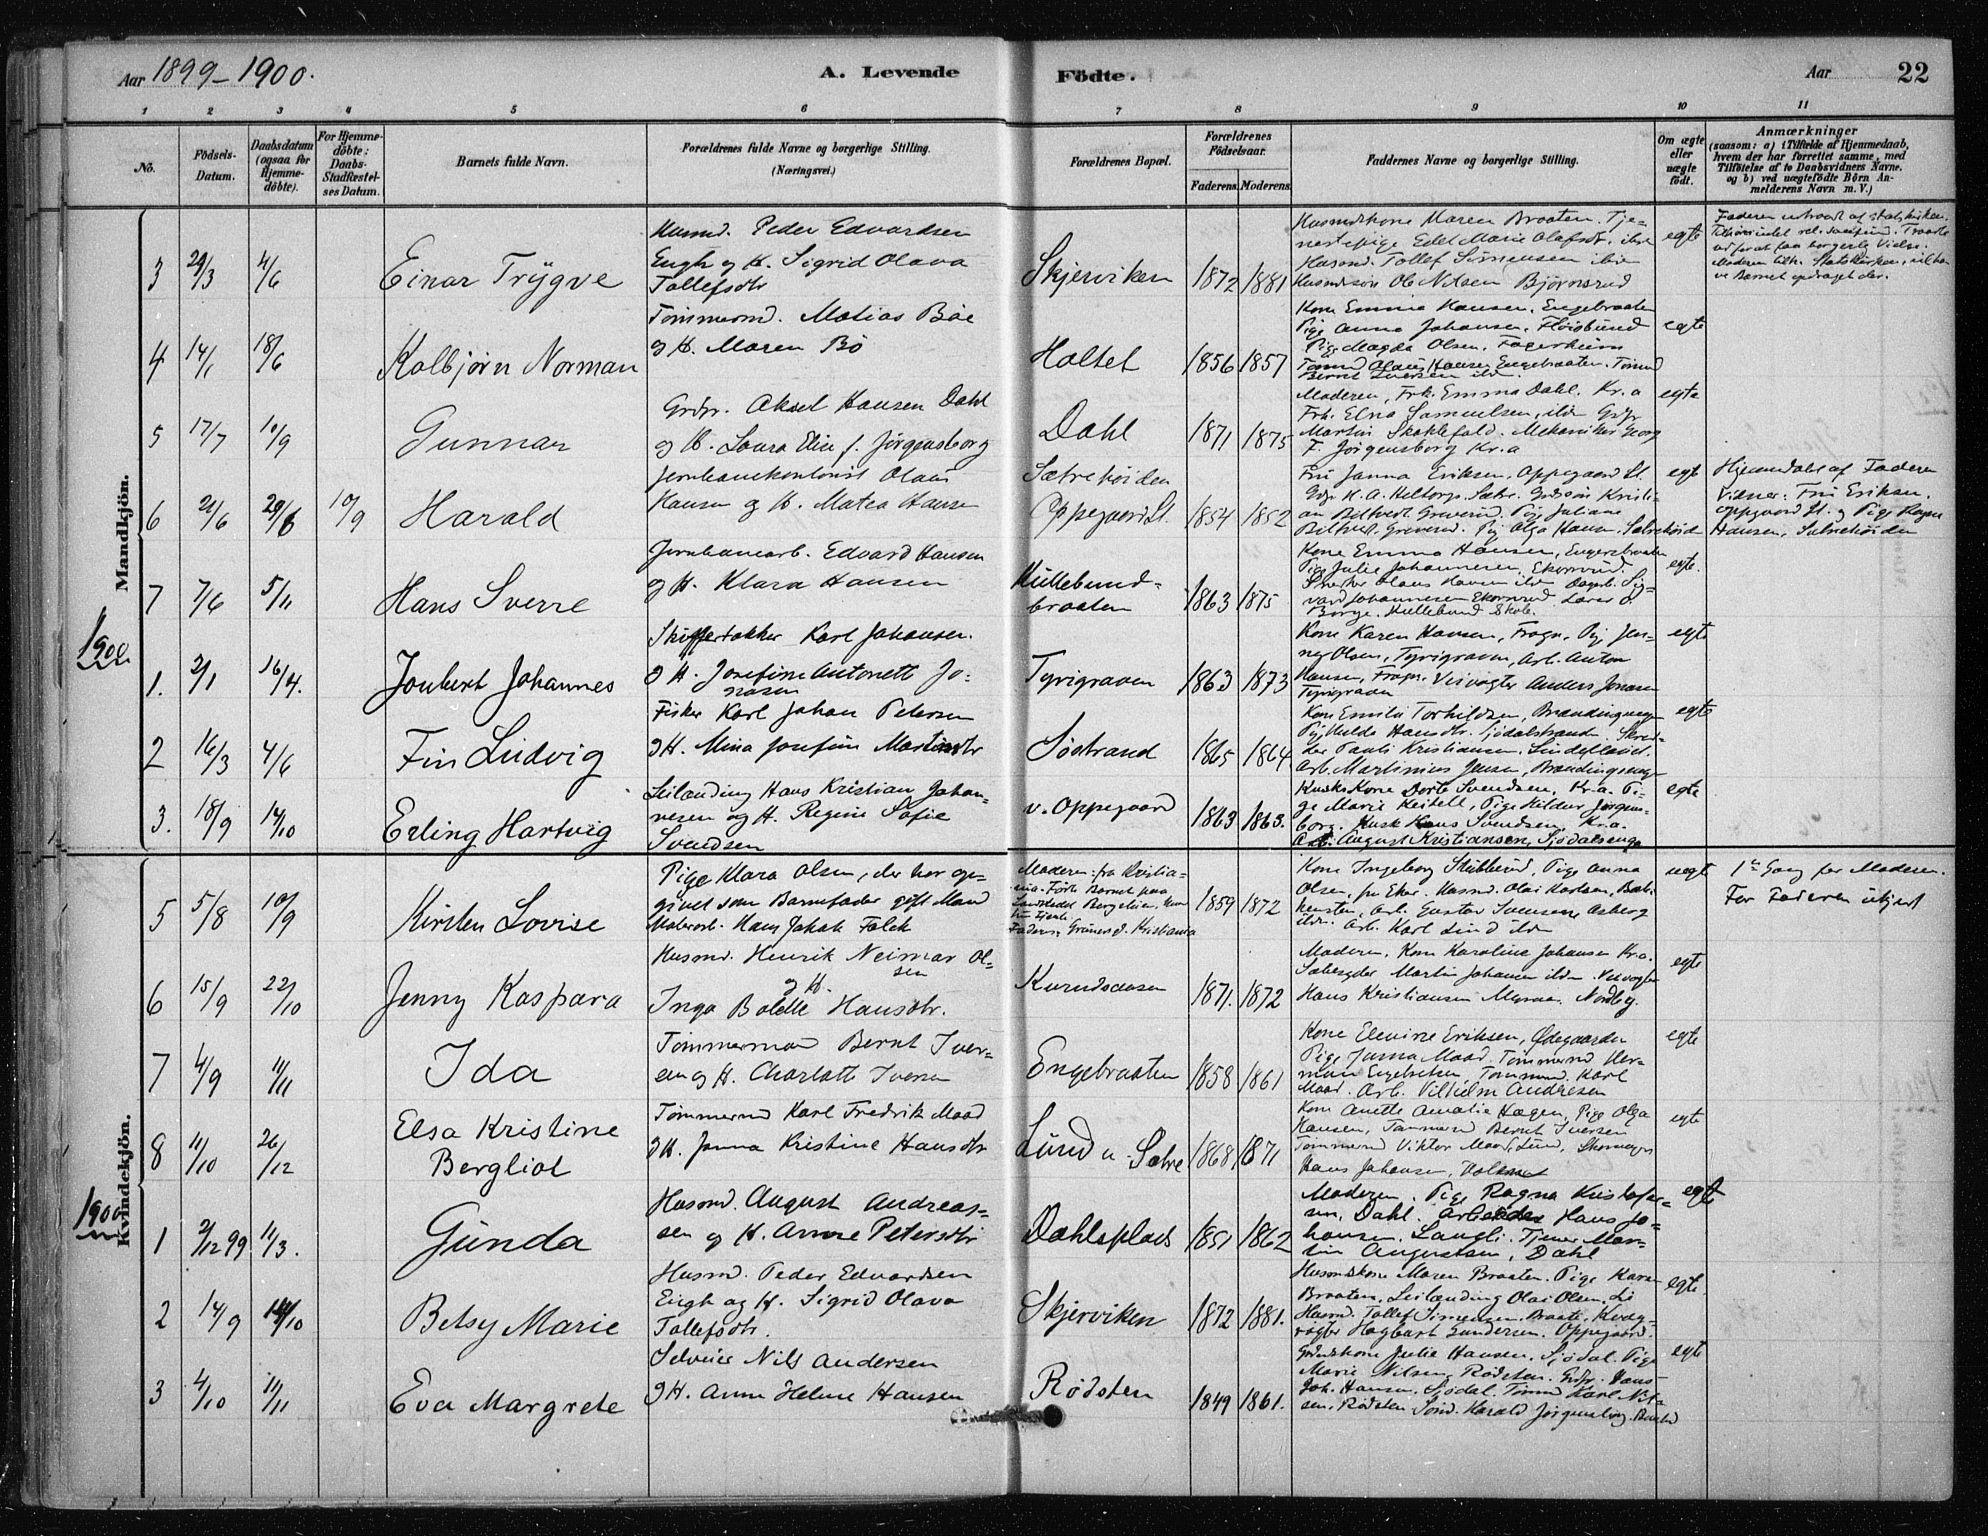 Aar 1899-1900.
A. Levende
Födte.
Aar
22
1 2 3 4 5 6 7 8 9 10 11
No.
Födsels-
Datum.
Daabsdatum
(ogsaa for
Hjemme-
döbte).
For Hjemme-
döbte:
Daabs-
Stadfæstel-
ses Datum.
Barnets fulde Navn.
Forældrenes fulde Navne og borgerlige Stilling.
(Næringsvei.)
Forældrenes Bopæl.
Forældrenes
Födselsaar.
Faderens. Moderens.
Faddernes Navne og borgerlige Stilling.
Om ægte
eller
uægte
født.
Anmærkninger
(saasom: a) i Tilfælde af Hjemmedaab,
hvem der har forrettet samme, med
Tilföielse af to Daabsvidners Navne.
og b) ved uægtefödte Börn An-
melderens Navn m. V.)
Mandkjön.
3 29/3 4/6 Einar Trygve
Husmd. Peder Edvardsen
Engh og H. Sigrid Olava
Tollefsdtr
Skjerviken 1872 1881
Husmdskone Maren Braaten. Tje-
nestepige Edel Marie Olafsdtr. ibid
Husmd. Tollef Simensen ibid
Husmdssön Ole Nilsen Björnsrud
egte
Faderen udtraadt af statskirken.
4 14/1 18/6 Kolbjørn Norman
Tømmermd. Matias Bøe
og H. Maren Bö
Holtet 1856 1857
Kone Emma Hansen, Engebraaten
Pige Anna Johansen, Fløisbund
Pige Magda Olsen, Fagerheim
Tømmd Olaus Hansen Engebraaten. Tømmd
Bernt Iversen ibid.
egte
5 17/7 10/9 Gunnar
Grdpr. Aksel Hansen Dahl
og H. Laura Elise f. Jørgensborg
Dahl 1871 1875
Moderen, Frk. Emma Dahl. Kr.a
Frk. Elna Samuelsen, ibid Grdpr
Martin Skoklefald. Mekaniker Georg
F. Jørgensborg Kr.a
egte
6 2/6 29/6 10/9 Harald
Jernbanekontorist Olaus
Hansen og H. Matea Hansen
Sætrehøiden
Oppegaard St. 1854 1852
Fru Janna Eriksen, Oppegaard St.
egte
Hjemmedøbt af Faderen
Vidner: Fru Eriksen.
Oppgaard St. og Pige Ragna
Hansen, Sætrehøiden
7 7/6 5/11 Hans Sverre
Jernbanearb. Edvard Hansen
og H. Klara Hansen
Hullebund-
braaten 1863 1875
Kone Emma Hansen, Engersbraaten
Pige Julie Johannesen, Ekornrud.
Børge. Hullebund Skole.
egte.
1900
1. 2/1 16/4. Joubert Johannes
Skuffertakker Karl Johansen.
og H. Josefine Antonette Jo-
nasen
Tyrigraven 1863 1873
Kone Karen Hansen, Frogn, Pige Jen-
ny Olsen, Tyrigraven, Arb. Anton
Hansen, Frogn. Veivogter Anders Jonasen
Tyrigraven
egte
2 16/3 4/6 Fin Ludvig
Fisker Karl Johan Petersen
og H. Mina Josefine Martinsdtr
Sostrand 1865 1864
Kone Emilie Torkildsen, Brændingsengen
Pige Hulda Hansdtr. Sjødalstrand. Skræd-
der Pauli Kristiansen. Lindeflaaet.
Arb. Martinius Jensen, Brændingsengen
egte
3. 18/9 14/10 Erling Hartvig
Leilænding Hans Kristian Johan-
nesen og H. Regine Sofie
Svendsen
v. Oppegaard 1863 1863.
Kuskskone Dorte Svendsen, Kr.a. Pi-
ge Marie Keitell, Pige Hilder Jørgens-
borg. Kusk Hans Svendsen Kr.a.
Arb. August Kristiansen, Sjødalsenga
egte
Kvindekjön.
5 5/8 10/9 Kirsten Lovise
Pige Klara Olsen, der har op-
givet som Barnefader gift Mand
Malerarb. Hans Jakob Falck
Moderen: fra Kristia-
nia. Fødte Barnet paa
1859 1872
Kone Ingeborg Stubberud, Pige Anna
Olsen, fra Eker. Husmd. Olai Karlsen, Bæk-
kensten, Arb. Gustav Svensen Asberg
ibid. Arb. Karl Lund ibid
uegt
1ste Gang for Moderen.
For Faderen ukjent
6 15/9 22/10 Jenny Kaspara
Husmd. Henrik Neimar Ol-
sen
og H.
Inga Bolette Hansdtr.
1871. 1872
Moderen, Kone Karoline Johansen Kr.a.
Sæbesyder Martin Johansen ibid. Veivogter
Hans Kristiansen Myrva. Nordby.
egte
7 4/9 11/11 Ida
Tømmermd Bernt Iver-
sen og H. Charlotte Iversen
Engebraaten 1858 1861
Kone Elevine Eriksen, Ødegaarden
Pige Janna Maad. Tømmermd Her-
man Engebretsen Tømmermd. Karl
Maad. Arb. Vilhelm Andresen
egte
8 11/10 26/12 Elsa Kristine
Bergliot
Tømmermd Karl Fredrik Maad
og H. Janna Kristine Hansdtr
Lund u. Sætre 1868 1871
Kone Anette Amalie Hagen, Pige Olga
Hansen, Tømmermd Bernt Iversen
Tømmermd Viktor Maad, Lund, Skomager
Hans Johansen,
egte
1900
1 2/12 99 11/3. Gunda
Husmd. August Andreas-
sen og H. Anne Petersdtr
Dahlsplads 1851 1862
Moderen. Pige Ragna Kristofer-
sen, Dahl. Arbeider Hans Jo-
hansen, Langli. Tjener Mar-
tin Augustsen, Dahl
egte
2 14/9 14/10 Betsy Marie
Husmd. Peder Edvardsen
Engh og H. Sigrid Olava
Tollefsdtr.
Skjerviken 1872 1881.
Husmdskone Maren Braaten. Pige Karen
Braaten, Leilænding Olai Olsen, Li
Husmd. Tollef Simensen. Braate, Kvæg-
røgter Hagbart Gundersen. Oppegaard.
egte
3 4/10 11/11 Eva Margrete
Selveier Nils Andersen
og H. Anne Helene Hansen
Rødsten 1849 1861.
Grdmdskone Julie Hansen, Sjødal. Pige
Marie Nilsen Rødsten. Grdpr. Hans
Joh. Hansen, Sjødal. Tømmd Karl Nil-
sen, Rødsten. Smd. Harald Jørgensborg.
egte